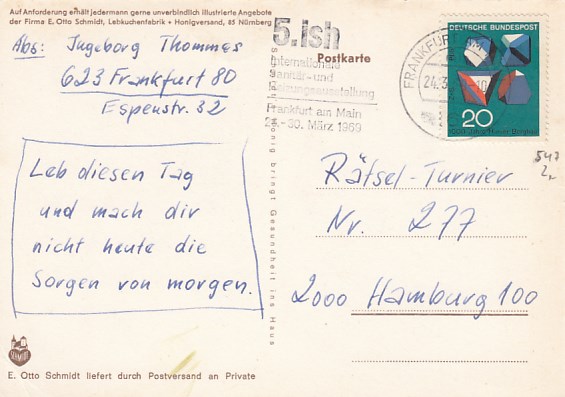 Auf Anforderung erhält jedermann gerne unverbindlich illustrierte Angebote
der Firma E. Otto Schmidt, Lebkuchenfabrik + Honigversand, 85 Nürnberg
Abs: Ingeborg Thommes
623 Frankfurt 80
Espenstr. 32
Leb diesen Tag
und mach dir
nicht heute die
Sorgen von morgen.
SCHMIDT
E. Otto Schmidt liefert durch Postversand an Private
Honig bringt Gesundheit ins Haus
5.ish
Postkarte
Internationale
Sanitär- und
Heizungsausstellung
Frankfurt am Main
24.-30. März 1969
FRANKFURT
24.3
DEUTSCHE BUNDESPOST
20
1000 Jahre Harzer Bergbau
547
Rätsel-Turnier
Nr. 277
2000 Hamburg 100